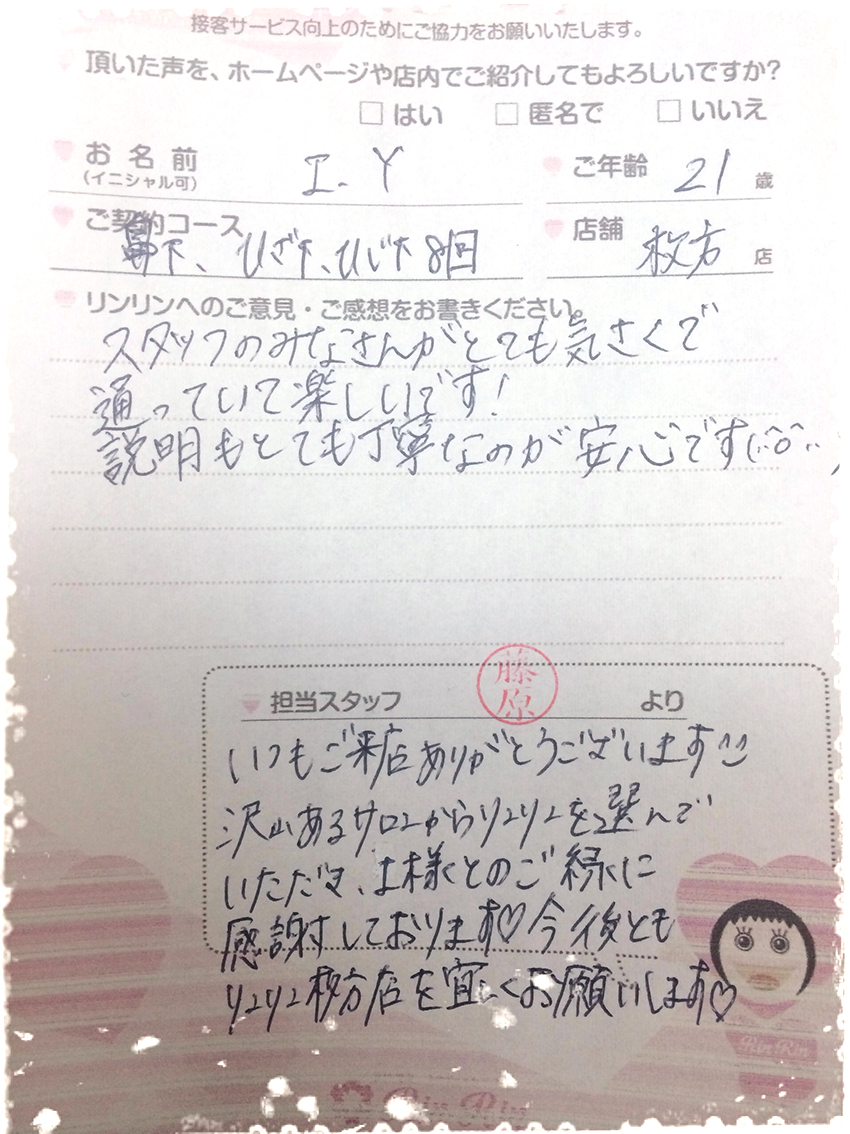 接客サービス向上のためにご協力をお願いいたします。
頂いた声を、ホームページや店内でご紹介してもよろしいですか?
□ はい □ 匿名で □ いいえ
お名前 I.Y ご年齢 21 歳
(イニシャル可)
ご契約コース 店舗 枚方 店
鼻下、ひざ下、ひじ下 8回
リンリンへのご意見・ご感想をお書きください。
スタッフのみなさんがとても気さくで
通っていて楽しいです!
説明もとても丁寧なのが安心です
藤原
担当スタッフ より
いつもご来店ありがとうございます
沢山あるサロンからリンリンを選んで
いただき、I様とのご縁に
感謝しております♡今後とも
リンリン枚方店を宜しくお願いします♡
Rin Rin
Rin Rin